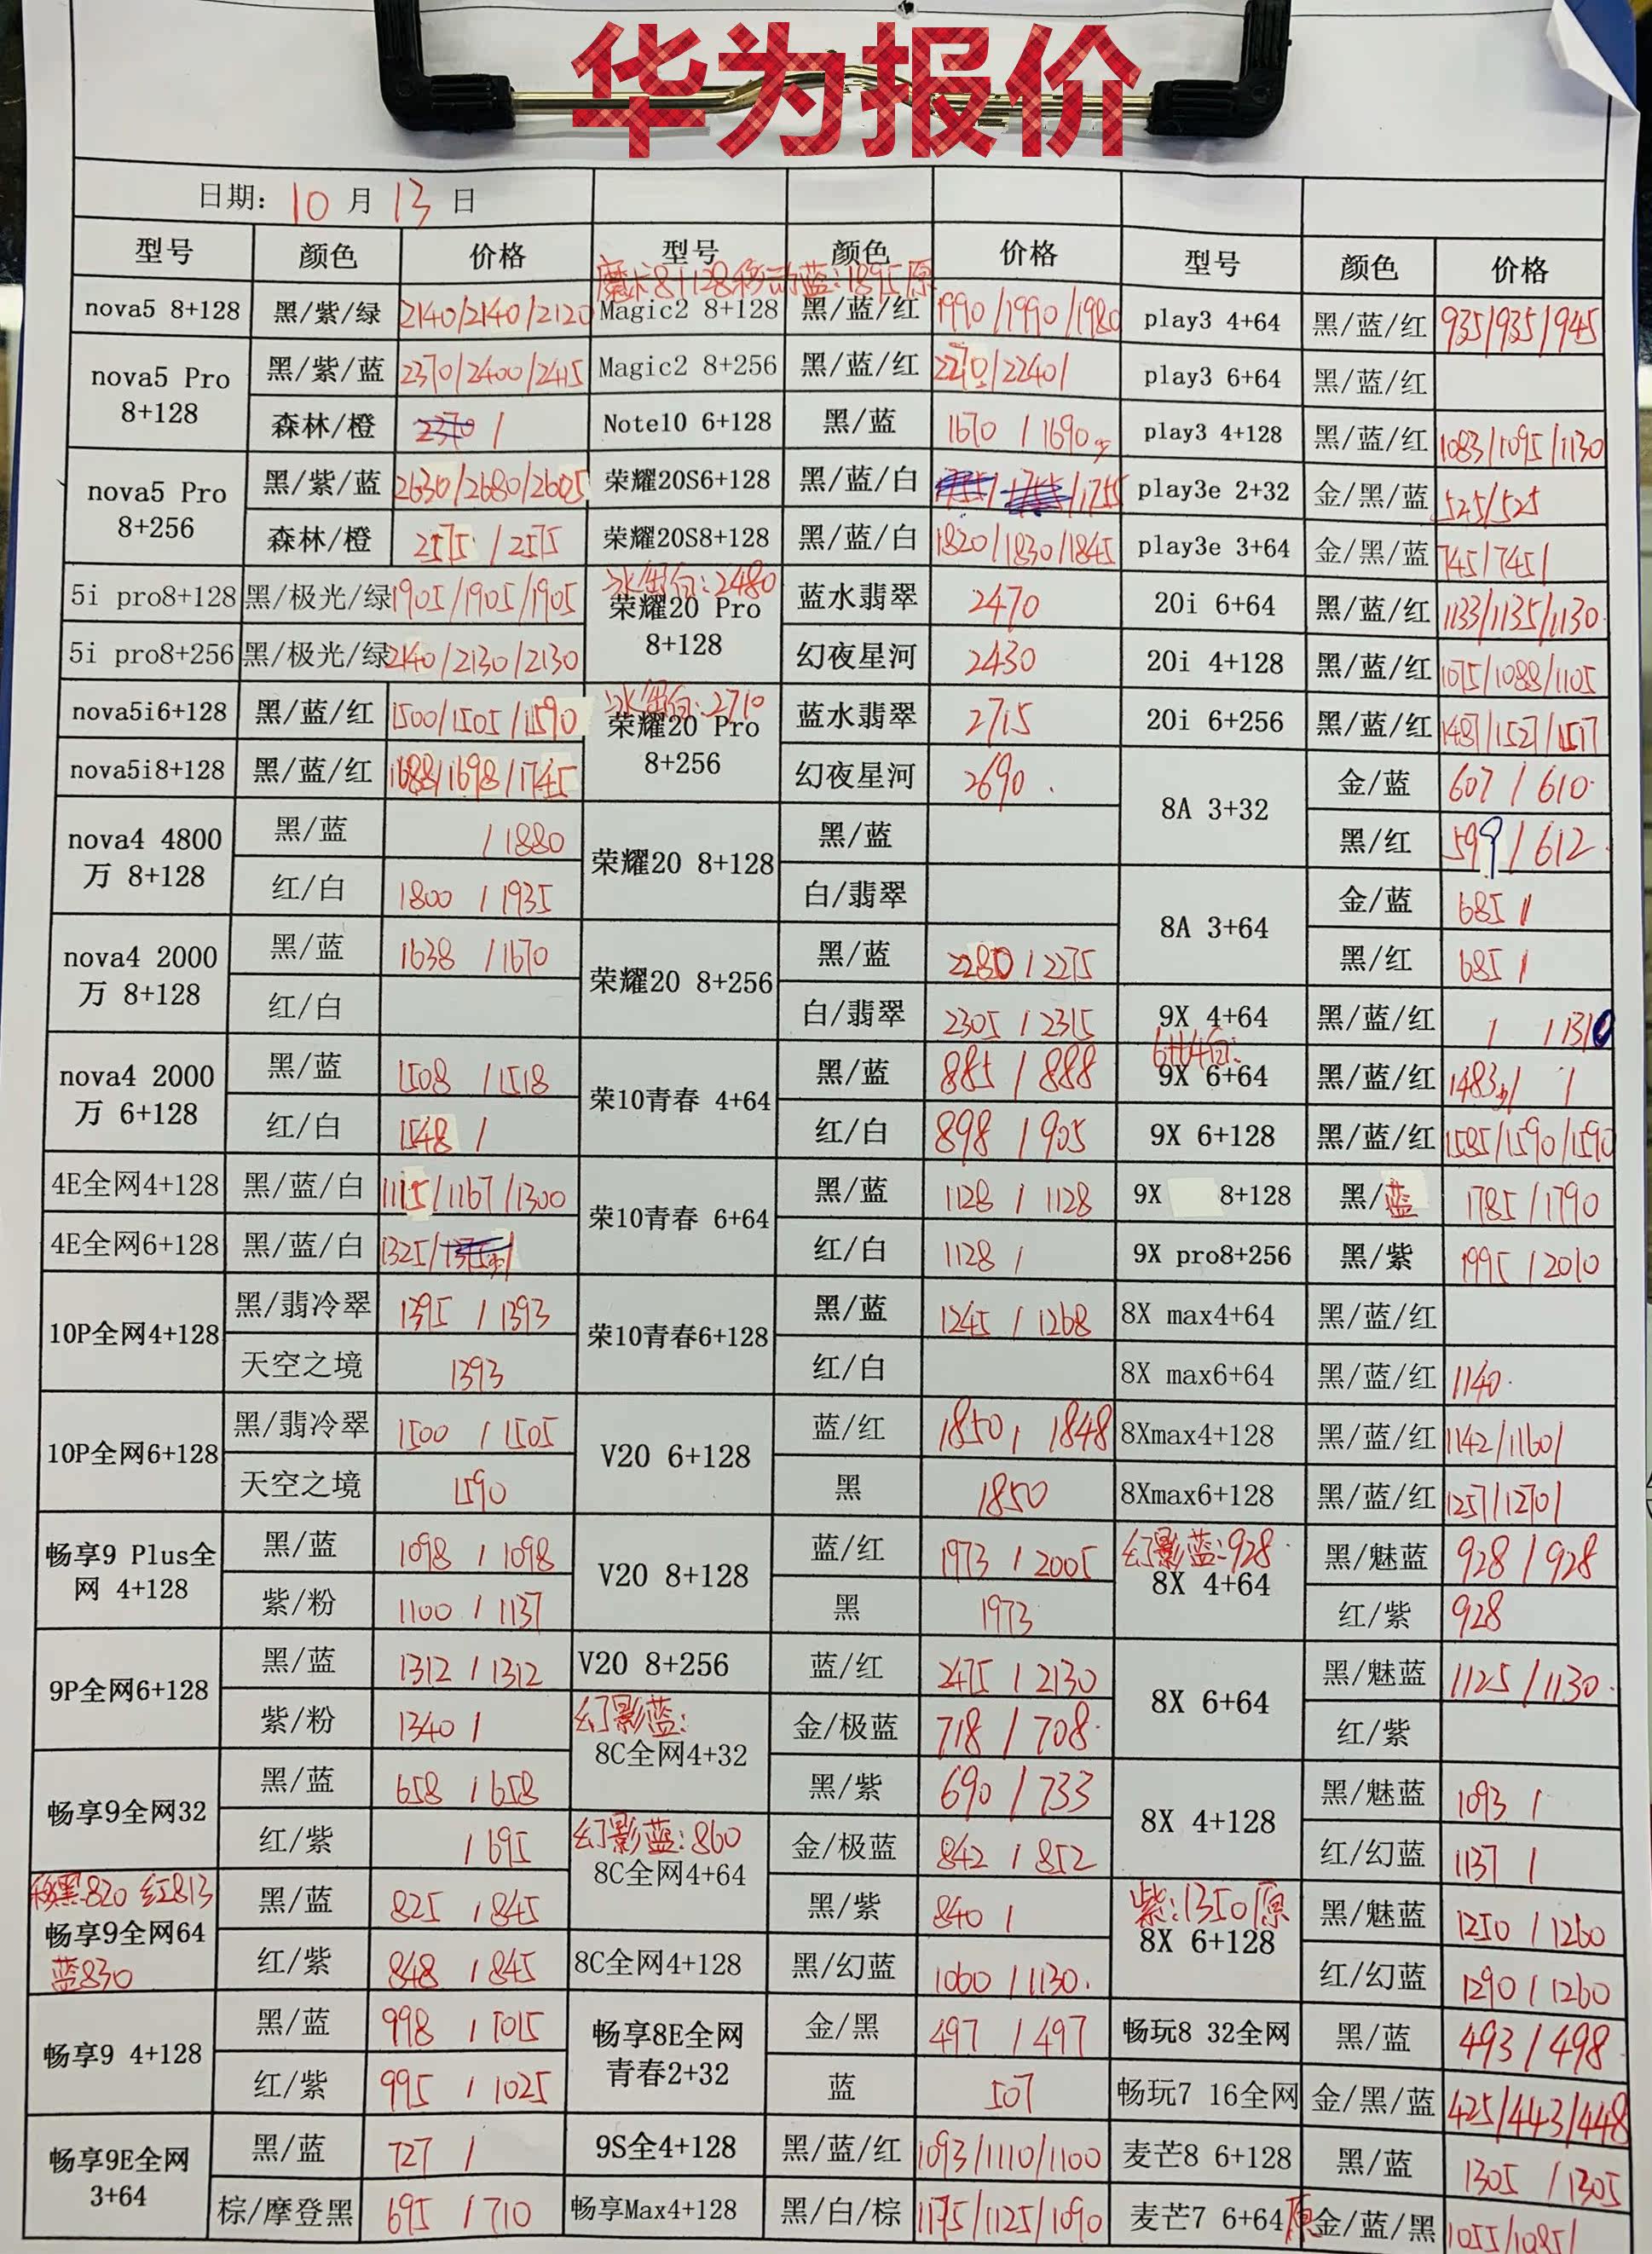 华为报价
日期: 10 月 13 日
型号 颜色 价格 型号 颜色 价格 型号 颜色 价格
魔术8+128移动蓝:1895原
nova5 8+128 黑/紫/绿 2140/2140/2120 Magic2 8+128 黑/蓝/红 1990/1990/1980 play3 4+64 黑/蓝/红 935/935/945
nova5 Pro 8+128 黑/紫/蓝 2370/2400/2415 Magic2 8+256 黑/蓝/红 2270/2240/ play3 6+64 黑/蓝/红
森林/橙 / Note10 6+128 黑/蓝 1670/1690 play3 4+128 黑/蓝/红 1083/1095/1130
nova5 Pro 8+256 黑/紫/蓝 2630/2680/2605 荣耀20S6+128 黑/蓝/白 /1755 play3e 2+32 金/黑/蓝 525/525
森林/橙 2575/2575 荣耀20S8+128 黑/蓝/白 1820/1830/1845 play3e 3+64 金/黑/蓝 745/745/
冰岛白:2480
5i pro8+128 黑/极光/绿 1905/1905/1905 荣耀20 Pro 8+128 蓝水翡翠 2470 20i 6+64 黑/蓝/红 1133/1135/1130
5i pro8+256 黑/极光/绿 2140/2130/2130 幻夜星河 2430 20i 4+128 黑/蓝/红 1075/1088/1105
冰岛白:2710
nova5i6+128 黑/蓝/红 1500/1505/1590 荣耀20 Pro 8+256 蓝水翡翠 2715 20i 6+256 黑/蓝/红 1487/1527/1517
nova5i8+128 黑/蓝/红 1688/1698/1745 幻夜星河 2690 8A 3+32 金/蓝 607/610
nova4 4800万 8+128 黑/蓝 /1880 荣耀20 8+128 黑/蓝 黑/红 599/612
红/白 1800/1935 白/翡翠 8A 3+64 金/蓝 685/
nova4 2000万 8+128 黑/蓝 1638/1670 荣耀20 8+256 黑/蓝 2280/2275 黑/红 685/
红/白 白/翡翠 2305/2315 9X 4+64 黑/蓝/红 / /1310
nova4 2000万 6+128 黑/蓝 1508/1518 荣10青春 4+64 黑/蓝 885/888 9X 6+64 黑/蓝/红 1483/ /
红/白 1548/ 红/白 898/905 9X 6+128 黑/蓝/红 1585/1590/1590
4E全网4+128 黑/蓝/白 1115/1167/1300 荣10青春 6+64 黑/蓝 1128/1128 9X 8+128 黑/蓝 1785/1790
4E全网6+128 黑/蓝/白 1325/ 红/白 1128/ 9X pro8+256 黑/紫 1995/2010
10P全网4+128 黑/翡冷翠 1395/1393 荣10青春6+128 黑/蓝 1245/1268 8X max4+64 黑/蓝/红
天空之境 1393 红/白 8X max6+64 黑/蓝/红 1140
10P全网6+128 黑/翡冷翠 1500/1505 V20 6+128 蓝/红 1850/1848 8Xmax4+128 黑/蓝/红 1142/1160/
天空之境 1590 黑 1850 8Xmax6+128 黑/蓝/红 1257/1270/
幻影蓝:928
畅享9 Plus全网 4+128 黑/蓝 1098/1098 V20 8+128 蓝/红 1973/2005 8X 4+64 黑/魅蓝 928/928
紫/粉 1100/1137 黑 1973 红/紫 928
9P全网6+128 黑/蓝 1312/1312 V20 8+256 蓝/红 2475/2130 8X 6+64 黑/魅蓝 1125/1130
幻影蓝:
紫/粉 1340/ 8C全网4+32 金/极蓝 718/708 红/紫
畅享9全网32 黑/蓝 658/658 黑/紫 690/733 8X 4+128 黑/魅蓝 1093/
幻影蓝:860
红/紫 /695 8C全网4+64 金/极蓝 842/852 红/幻蓝 1137/
移黑820 红813 紫:1350原
畅享9全网64 黑/蓝 825/845 黑/紫 840/ 8X 6+128 黑/魅蓝 1250/1260
蓝830
红/紫 848/845 8C全网4+128 黑/幻蓝 1060/1130 红/幻蓝 1290/1260
畅享9 4+128 黑/蓝 998/1015 畅享8E全网青春2+32 金/黑 497/497 畅玩8 32全网 黑/蓝 493/498
红/紫 995/1025 蓝 507 畅玩7 16全网 金/黑/蓝 425/443/448
畅享9E全网 3+64 黑/蓝 727/ 9S全4+128 黑/蓝/红 1093/1110/1100 麦芒8 6+128 黑/蓝 1305/1305
棕/摩登黑 695/710 畅享Max4+128 黑/白/棕 1175/1125/1090 麦芒7 6+64原 金/蓝/黑 1055/1085/